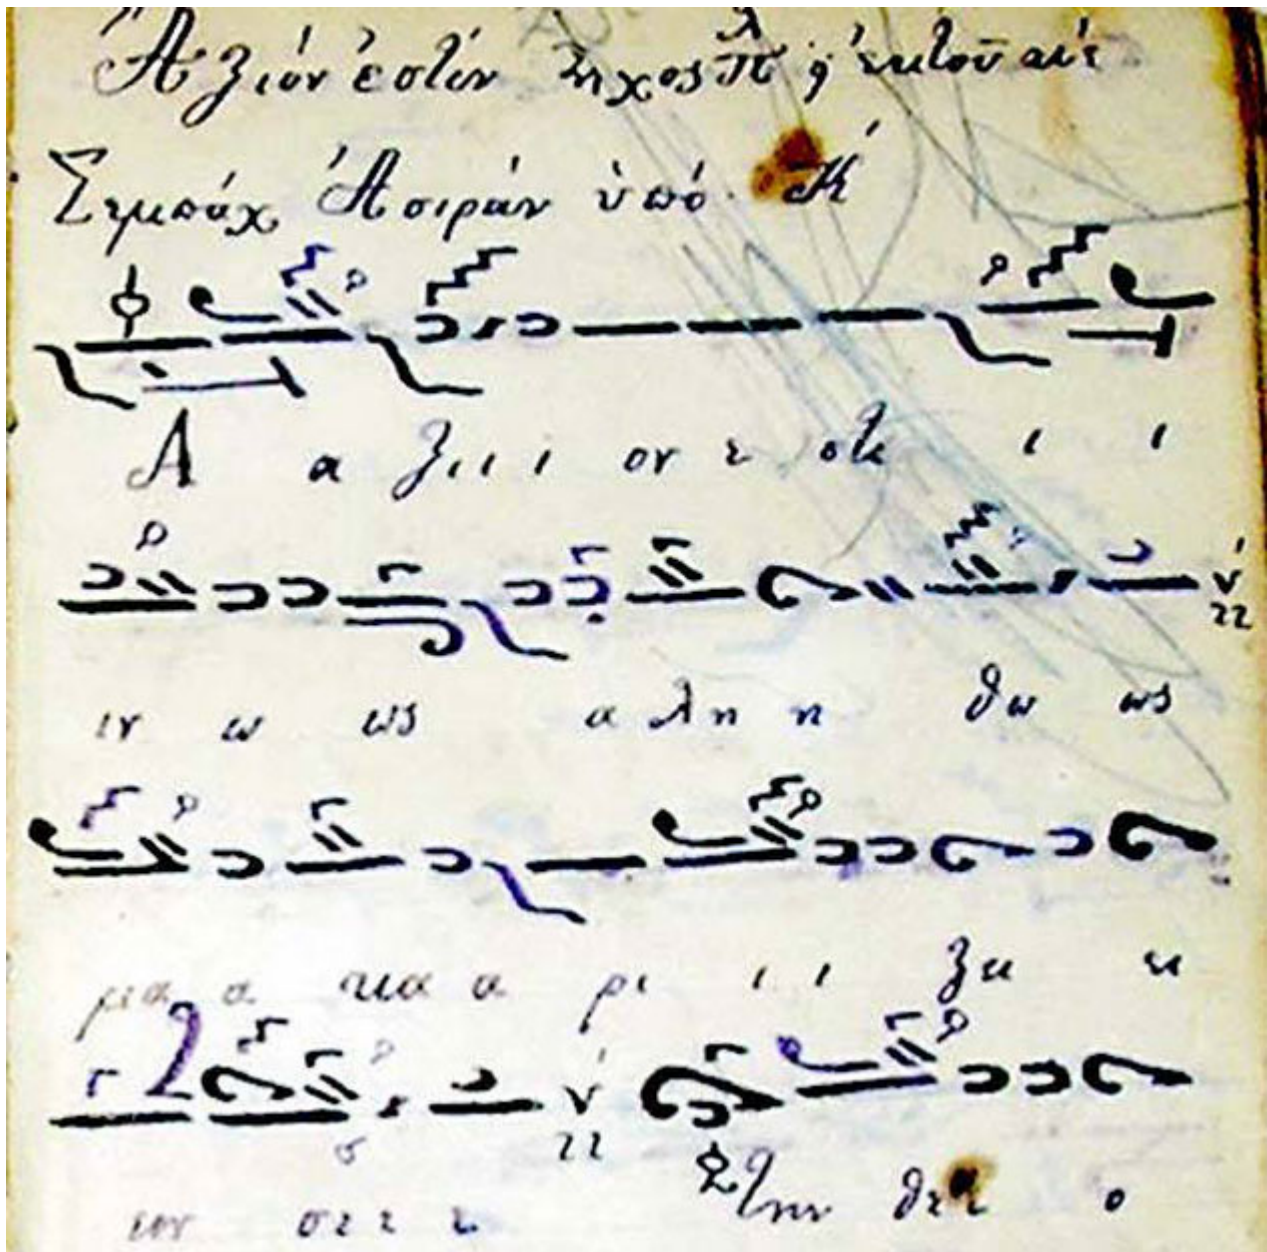 Ἄξιόν ἐστίν Ἦχος λ π ᾳ ἐκτοῦ
Σεμπάχ Ἀσιράν ὑπό Κ
Α α ξι ι ι ον ε στι ι ι
ιν ω ως α λη η θω ως
μα α κα α ρι ι ι ζει ει
ειν σε ε ε την θε ε ο